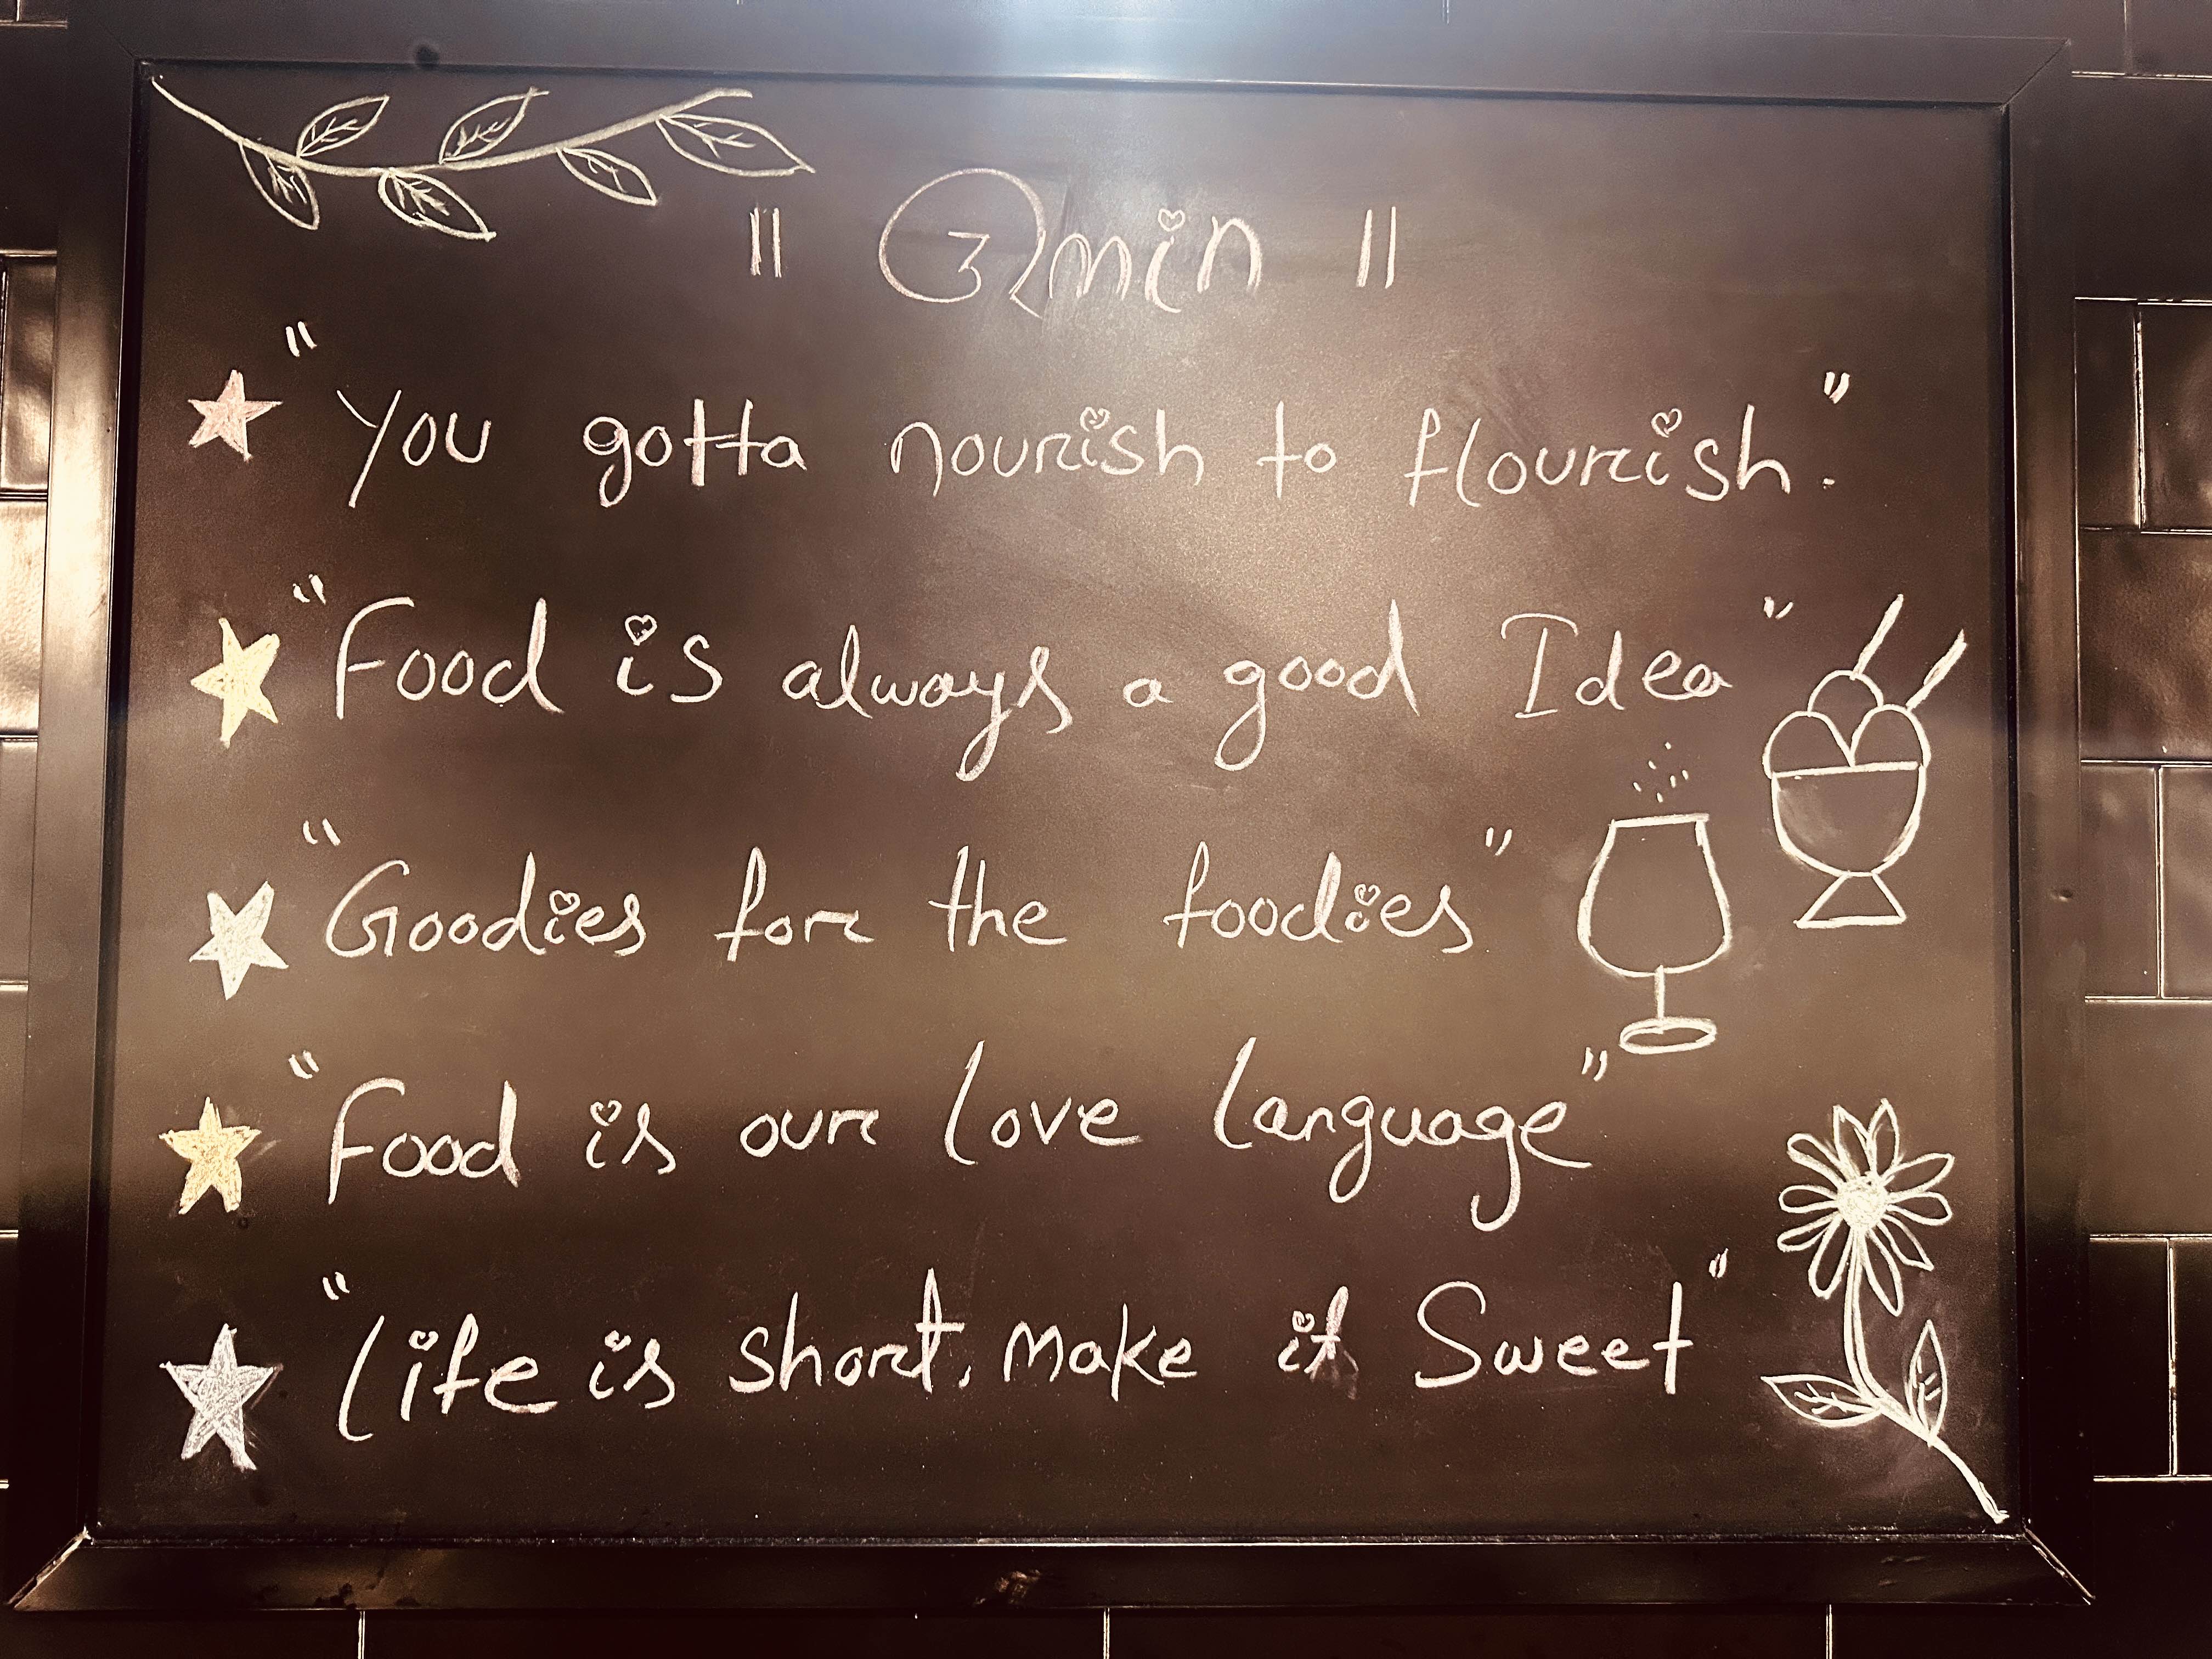 || Qmin ||
"You gotta nourish to flourish."
"Food is always a good Idea"
"Goodies for the foodies"
"Food is our love language"
"Life is short, Make it Sweet"